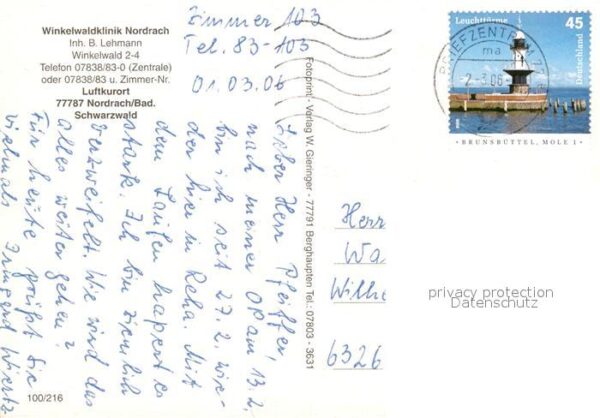 Winkelwaldklinik Nordrach
Inh. B. Lehmann
Winkelwald 2-4
Telefon 07838/83-0 (Zentrale)
oder 07838/83 u. Zimmer-Nr.
Luftkurort
77787 Nordrach/Bad.
Schwarzwald
Zimmer 103
Tel. 83-103
01.03.06
Lieber Herr Pfeiffer,
nach meiner OP am 13.2.
bin ich seit 27.2. wie-
der hier in Reha. Mit
dem Laufen hapert es
stark. Ich bin ziemlich
verzweifelt. Wie wird das
alles weiter gehen?
Für heute grüßt Sie
vielmals Irmgard Wiertz
100/216
Fotoprint - Verlag W. Gieringer - 77791 Berghaupten Tel.: 07803 - 3631
Leuchttürme
45
Deutschland
BRUNSBÜTTEL, MOLE 1
BRIEFZENTRUM 77
ma
-2.-3.06
Herr
Wa
Wilhe
6326
privacy protection
Datenschutz